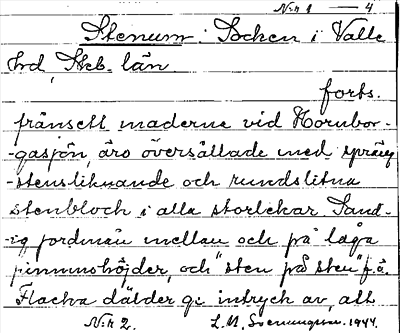 N:r 1 — 4
Stenum: Socken i Valle
Hrd, Skb. län.
forts.
frånsett maderna vid Hornbor-
-gasjön, äro översållade med spräng
-stensliknande och rundslitna
stenblock i alla storlekar. Sand-
-ig jordmån mellan och på låga
pinnmohöjder, och "sten på sten" på
Flacka dälder ge intryck av, att
N:r 2. L. M. Svenungsson. 1944.